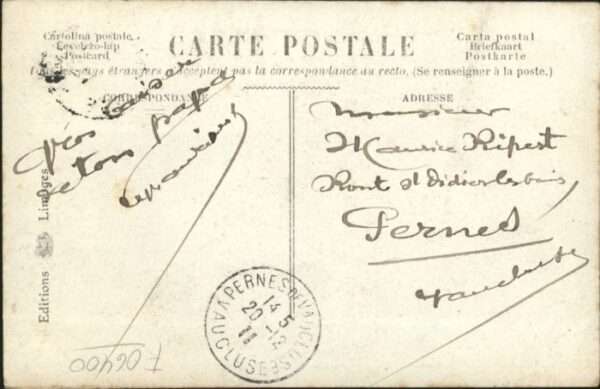 Cartolina postale
Levelezo-lap
Postcard
CARTE POSTALE
Carta postal
Briefkaart
Postkarte
Tous les pays étrangers n'acceptent pas la correspondance au recto. (Se renseigner à la poste.)
CORRESPONDANCE
ADRESSE
gros
de ton papa
Monsieur
Maurice Ripert
Pont St Didier les bains
Pernes
Vaucluse
Editions Limoges
PERNES VAUCLUSE
14 5
20 - 12
11
VAUCLUSE
F06400